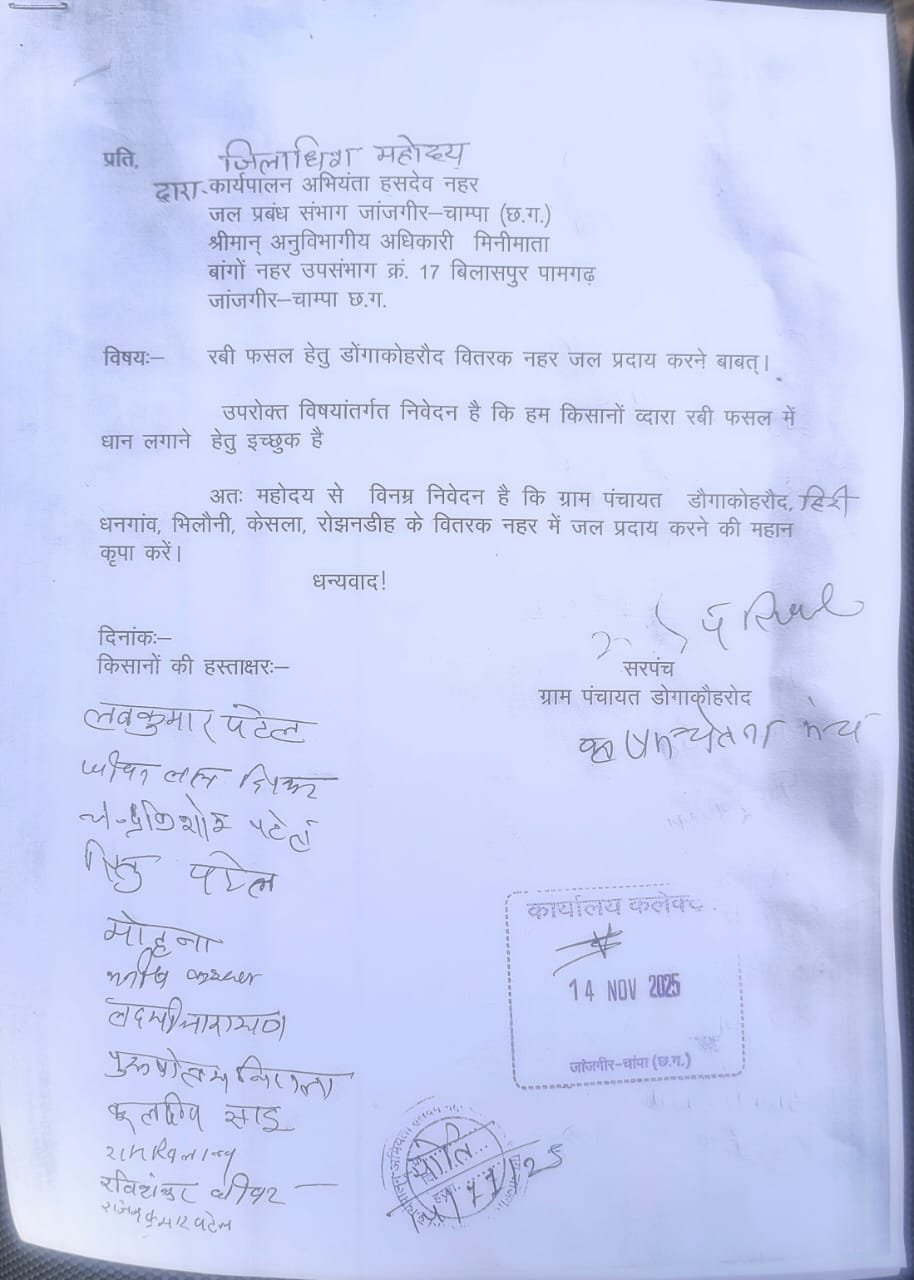 प्रति, जिलाधिश महोदय
द्वारा-कार्यपालन अभियंता हसदेव नहर
जल प्रबंध संभाग जांजगीर–चाम्पा (छ.ग.)
श्रीमान् अनुविभागीय अधिकारी मिनीमाता
बांगों नहर उपसंभाग क्रं. 17 बिलासपुर पामगढ़
जांजगीर–चाम्पा छ.ग.
विषयः– रबी फसल हेतु डोंगाकोहरौद वितरक नहर जल प्रदाय करने बाबत्।
उपरोक्त विषयांतर्गत निवेदन है कि हम किसानों व्दारा रबी फसल में
धान लगाने हेतु इच्छुक है
अतः महोदय से विनम्र निवेदन है कि ग्राम पंचायत डौगाकोहरौद, हिरी
धनगांव, भिलौनी, केसला, रोझनडीह के वितरक नहर में जल प्रदाय करने की महान
कृपा करें।
धन्यवाद!
दिनांकः–
किसानों की हस्ताक्षरः–
सरपंच
ग्राम पंचायत डोगाकौहरोद
लवकुमार पटेल
चन्द्रकिशोर पटेल
पटेल
मोहना
लक्ष्मीनारायण
पुरूषोत्तम
कुलदीप साहू
रविशंकर धीवर
राजेन्द्र कुमार पटेल
कार्यालय कलेक्ट
14 NOV 2025
जांजगीर–चांपा (छ.ग.)